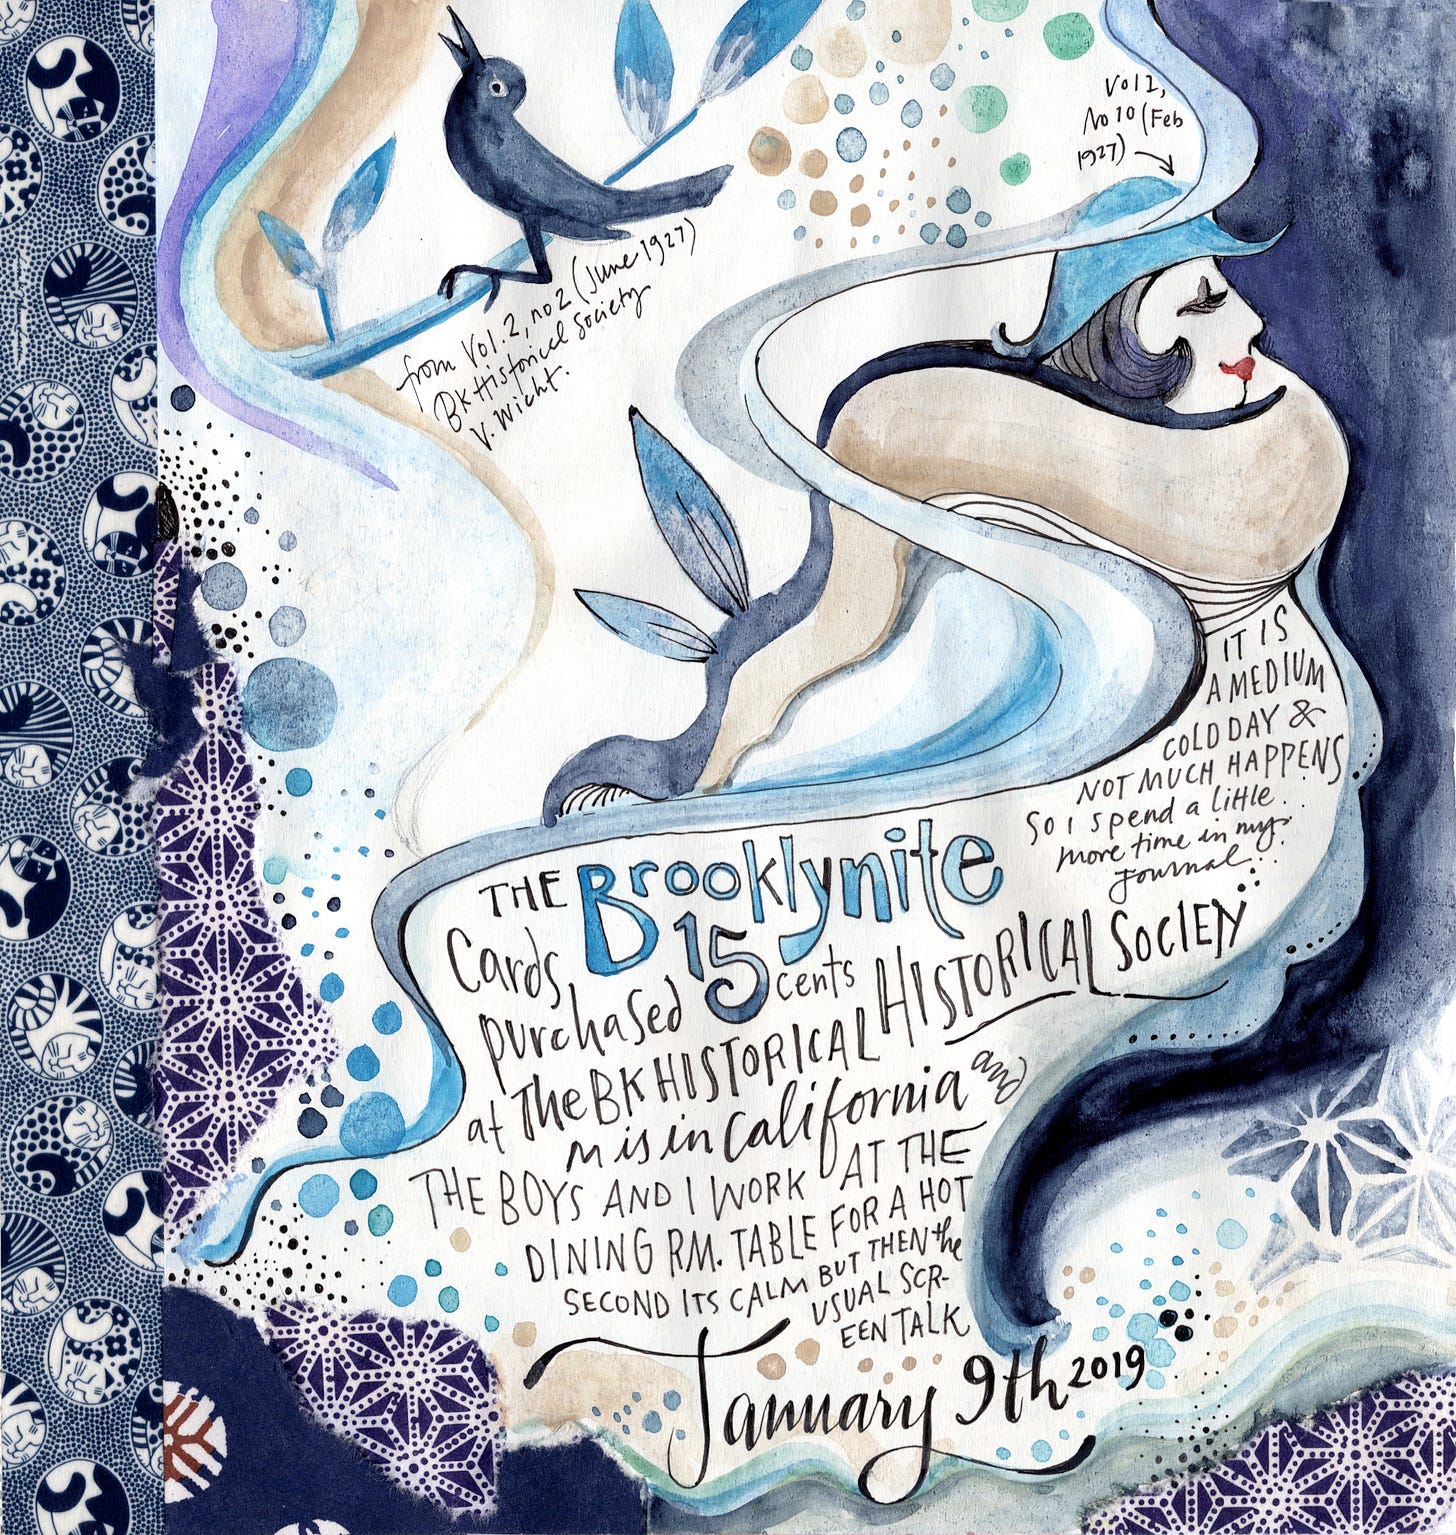 Vol 2,
No 10 (Feb
1927)
from Vol. 2, no 2 (June 1927)
BK Historical Society
V. Wicht.
IT IS
A MEDIUM
COLD DAY &
NOT MUCH HAPPENS
SO I Spend a little
more time in my
journal...
THE Brooklynite
Cards 15 cents
purchased
at The BK HISTORICAL HISTORICAL SOCIETY
M is in California and
THE BOYS AND I WORK AT THE
DINING RM. TABLE FOR A HOT
SECOND ITS CALM BUT THEN the
USUAL SCR-
EEN TALK
January 9th 2019